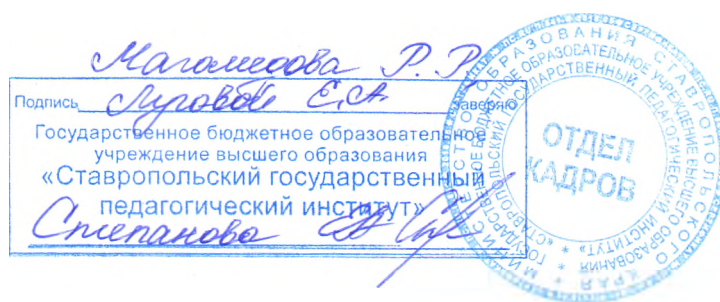 Магомедова Р. Р.
Подпись Луговой Е.А. заверяю
Государственное бюджетное образовательное
учреждение высшего образования
«Ставропольский государственный
педагогический институт»
Степанова
ОТДЕЛ
КАДРОВ
ОБРАЗОВАНИЯ СТАВРОПОЛЬСКОГО КРАЯ * МИНИСТЕРСТВО
ГОСУДАРСТВЕННОЕ БЮДЖЕТНОЕ ОБРАЗОВАТЕЛЬНОЕ УЧРЕЖДЕНИЕ ВЫСШЕГО ОБРАЗОВАНИЯ
* «СТАВРОПОЛЬСКИЙ ГОСУДАРСТВЕННЫЙ ПЕДАГОГИЧЕСКИЙ ИНСТИТУТ» *